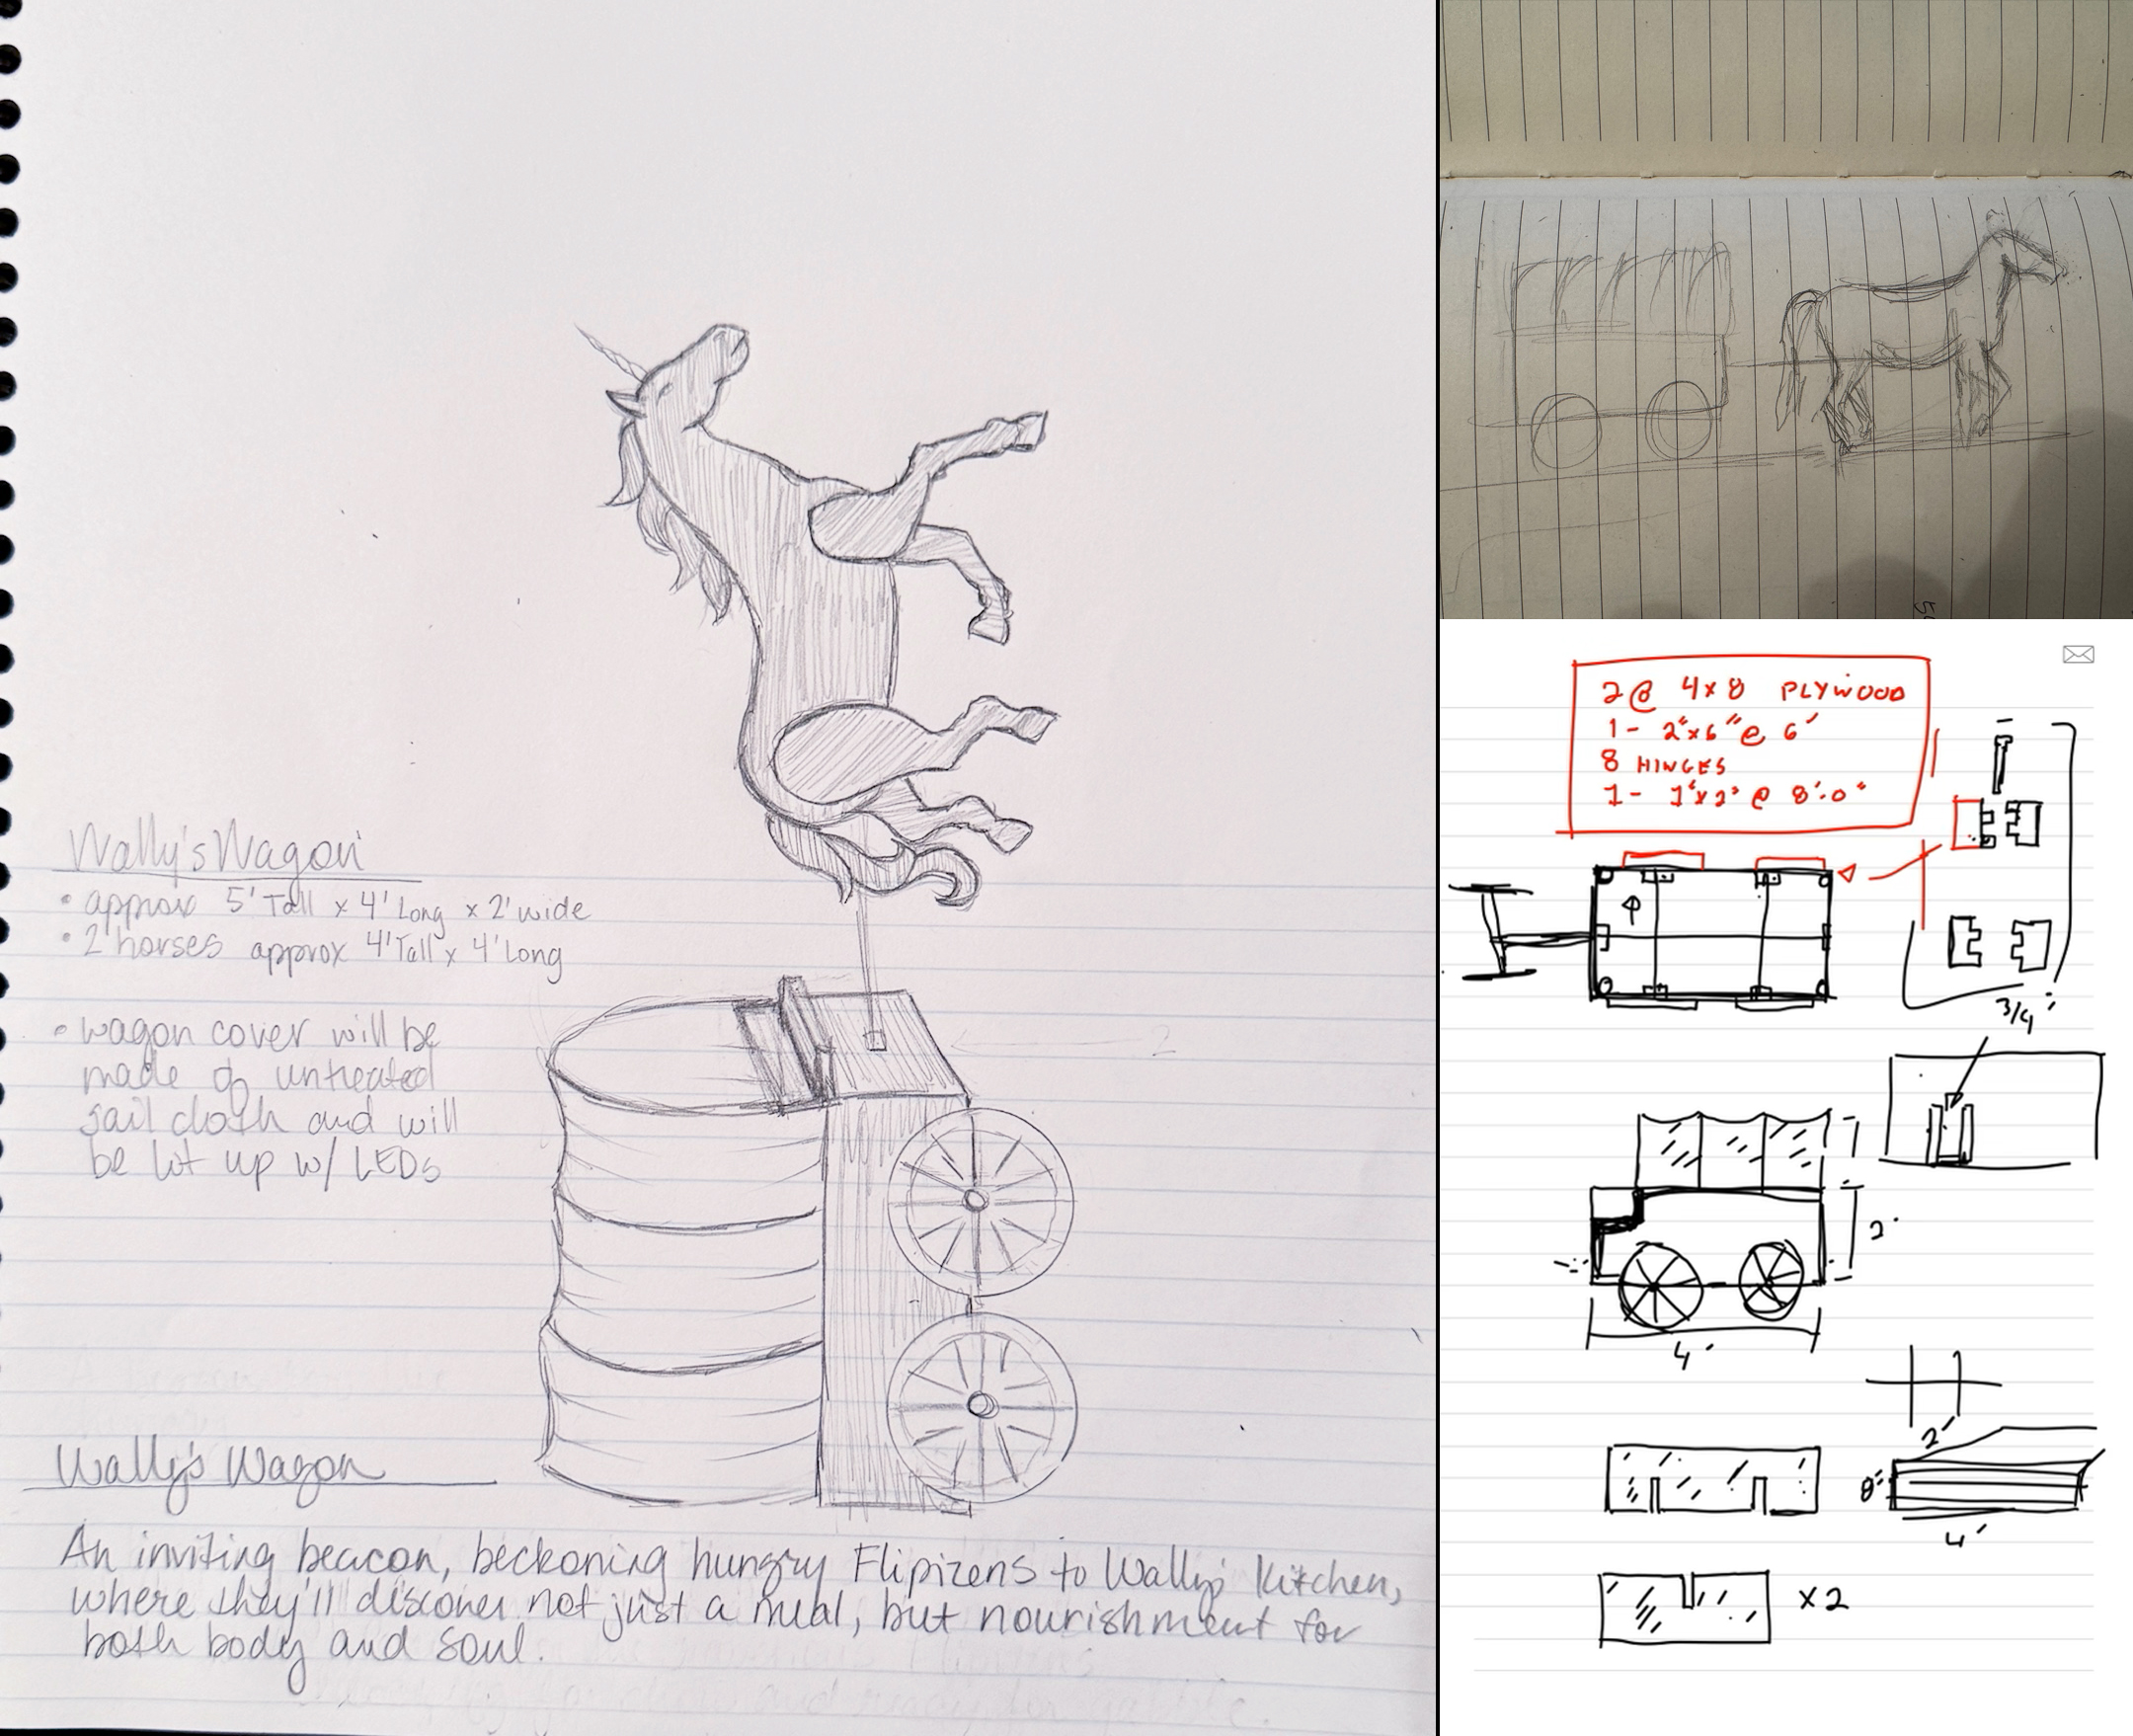 Wally's Wagon
• approx 5' Tall x 4' Long x 2' wide
• 2 horses approx 4' Tall x 4' Long
• wagon cover will be
made of untreated
sail cloth and will
be lit up w/ LEDs
2
Wally's Wagon
An inviting beacon, beckoning hungry Flipizens to Wally's Kitchen,
where they'll discover not just a meal, but nourishment for
both body and soul.
2 @ 4x8 PLYWOOD
1- 2"x6" @ 6'
8 HINGES
1- 1"x2" @ 8'-0"
3/4"
2'
4'
2'
8"
4'
x2